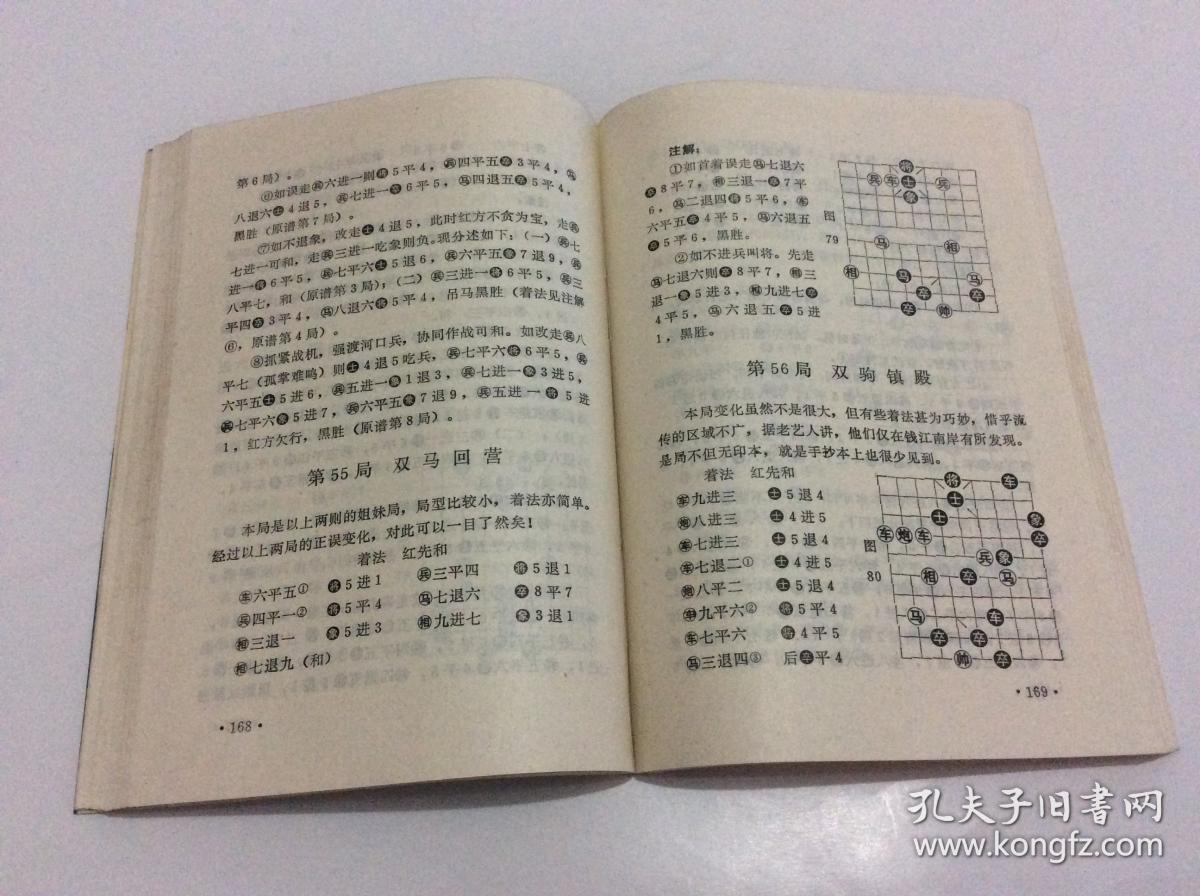 第6局）。
⑥如误走兵六进一则将5平4，兵四平五卒3平4，马
八退六士4退5，兵七进一卒6平5，马四退五卒5平4，
黑胜（原谱第7局）。
⑦如不退象，改走士4退5，此时红方不贪为宝，走兵
七进一可和，走兵三进一吃象则负。现分述如下：（一）兵七
进一将6平5，兵七平六士5退6，兵六平五象7退9，兵
八平七，和（原谱第3局）；（二）兵三进一将6平5，兵三
平四卒3平4，马八退六将5平4，吊马黑胜（着法见注解
⑥，原谱第4局）。
⑧抓紧战机，强渡河口兵，协同作战可和。如改走兵八
平七（孤掌难鸣）则士4退5吃兵，兵七平六将6平5，兵
六平五士5进6，兵五进一象1退3，兵七进一象3进5，
兵七平六象5进7，兵六平五象7退9，兵五进一将5进
1，红方欠行，黑胜（原谱第8局）。
第55局 双马回营
本局是以上两则的姐妹局，局型比较小，着法亦简单。
经过以上两局的正误变化，对此可以一目了然矣！
着法 红先和
车六平五① 将5进1 兵三平四 将5退1
兵四平一② 将5平4 马七退六 卒8平7
相三退一 象5进3 相九进七 象3退1
相七退九（和）
·168·
注解：
①如首着误走马七退六
卒8平7，相三退一卒7平
6，马二退四卒5平6，车
六平五卒4平5，马六退五
卒5平6，黑胜。
②如不进兵叫将。先走
马七退六则卒8平7，相三
退一象5进3，相九进七卒
4平5，马六退五卒5进
1，黑胜。
将
兵车士兵
象
图
79
马相
相马马
卒卒
卒帅
第56局 双驹镇殿
本局变化虽然不是很大，但有些着法甚为巧妙，惜乎流
传的区域不广，据老艺人讲，他们仅在钱江南岸有所发现。
是局不但无印本，就是手抄本上也很少见到。
着法 红先和
车九进三 士5退4
炮八进三 士4进5
车七进三 士5退4
车七退二① 士4进5
炮八平二 士5退4
车九平六② 将5平4
车七平六 将4平5
马三退四③ 后卒平4
将车
士
士象
车炮车卒
图
兵象
80
相卒马
马车
卒卒
帅卒
·169·
孔夫子旧书网
www.kongfz.com